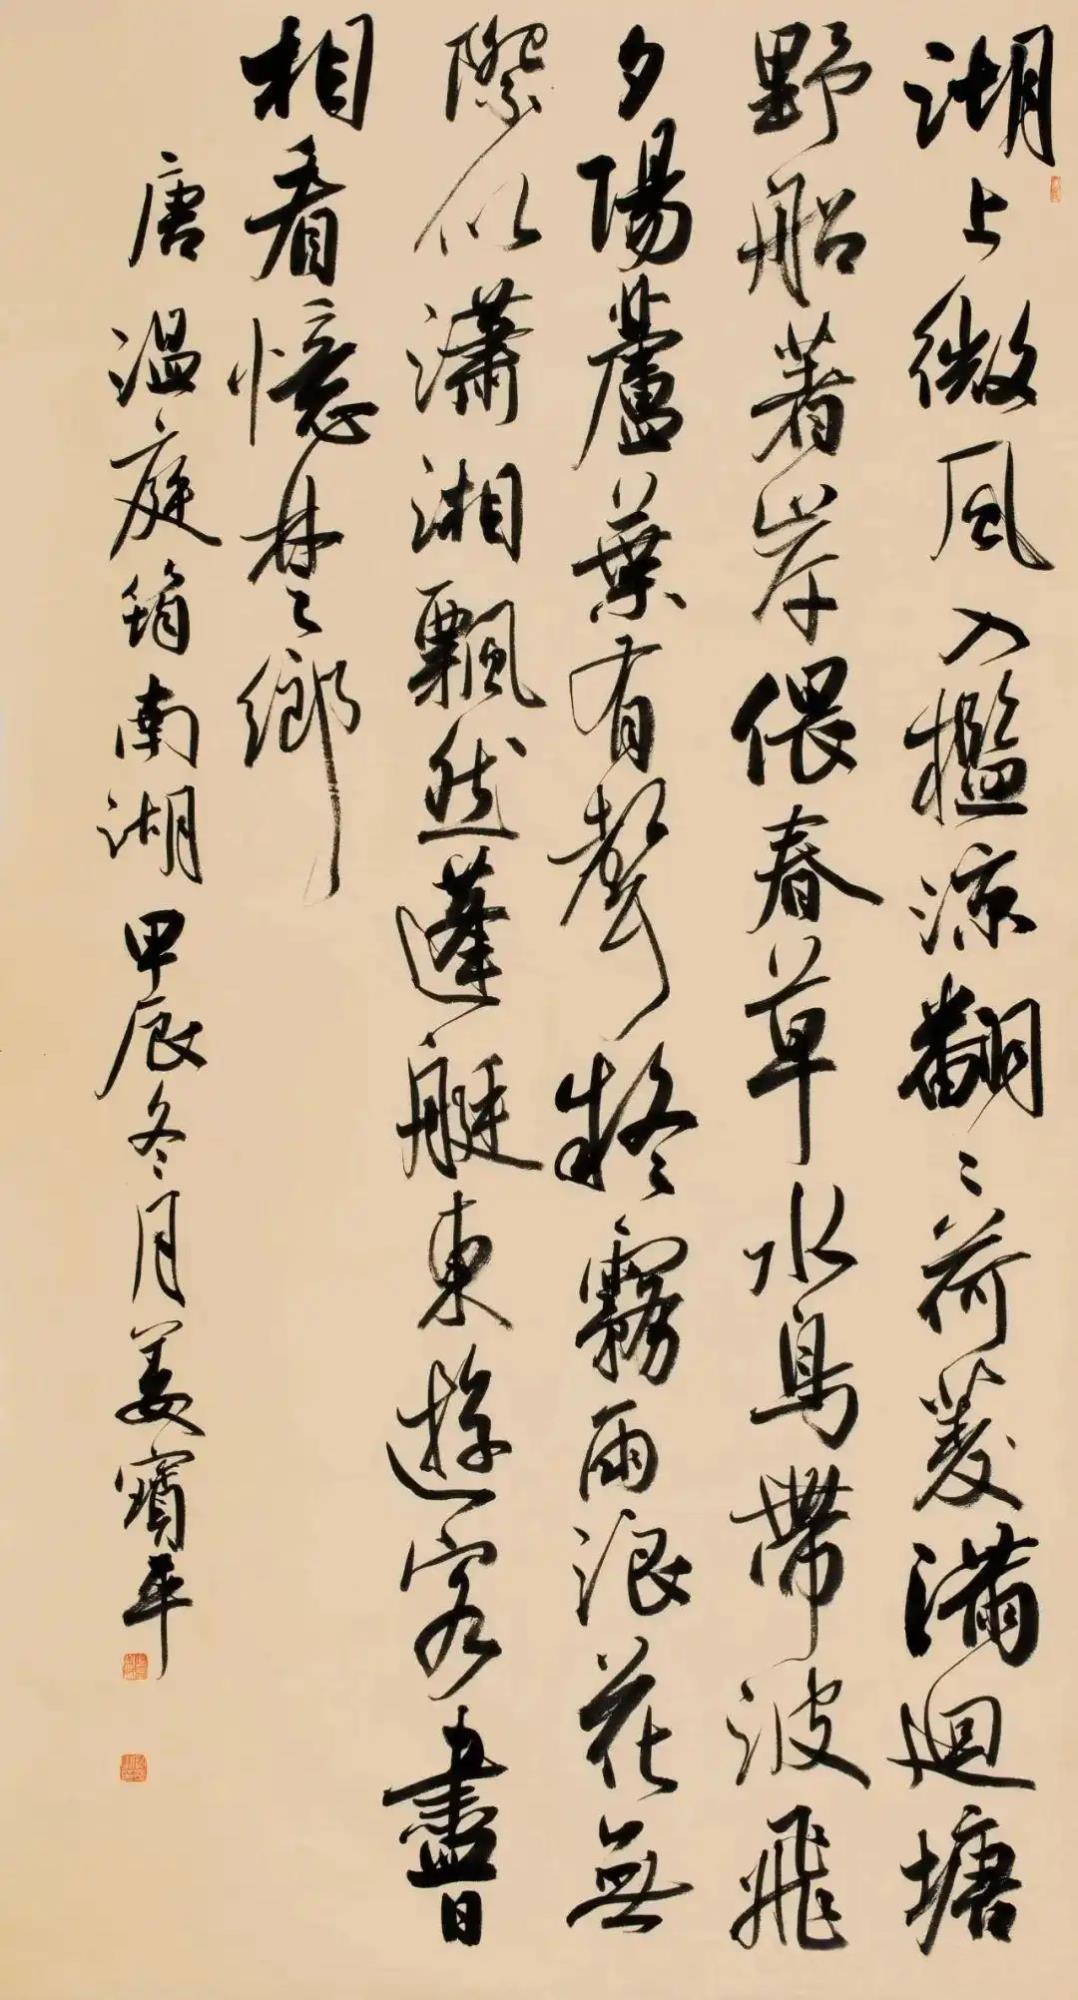 湖上微風入檻涼翻〻荷菱滿迴塘
野船著岸偎春草水鳥帶波飛
夕陽蘆葉有聲疑霧雨浪花無
際似瀟湘飄然蓬艇東遊客盡日
相看憶楚鄉
唐溫庭筠南湖甲辰冬月姜寶平